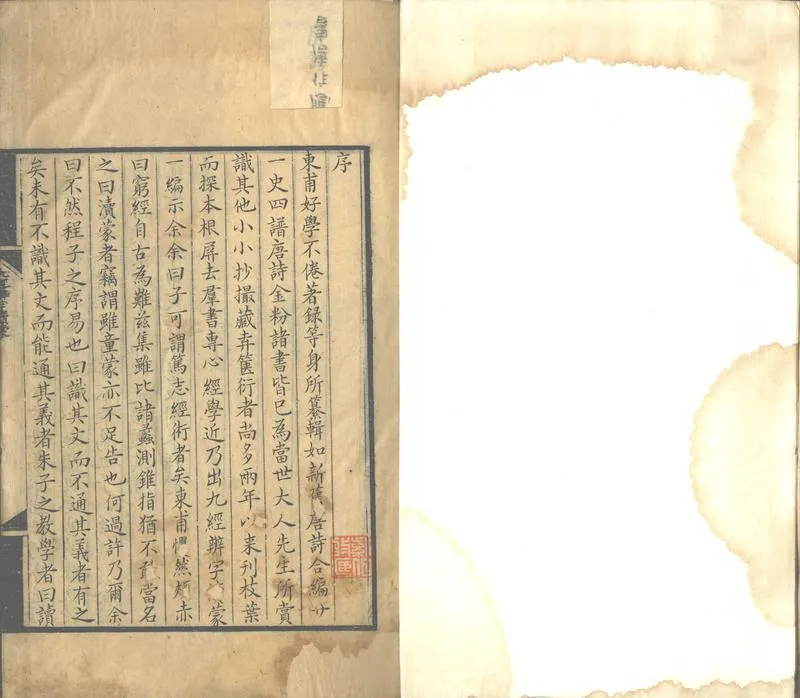 序
東甫好學不倦著録等身所纂輯如新舊唐詩合編廿
一史四譜唐詩金粉諸書皆已為當世大人先生所賞
識其他小小抄撮藏弆篋衍者尚多兩年以来刊枝葉
而探本根屏去羣書專心經學近乃出九經辨字 蒙
一編示余余曰子可謂篤志經術者矣東甫 然 赤
曰窮經自古為難兹集雖比諸蠡測錐指猶不 當名
之曰瀆蒙者竊謂雖童蒙亦不足告也何過許乃爾余
曰不然程子之序易也曰識其文而不通其義者有之
矣未有不識其文而能通其義者朱子之教學者曰讀